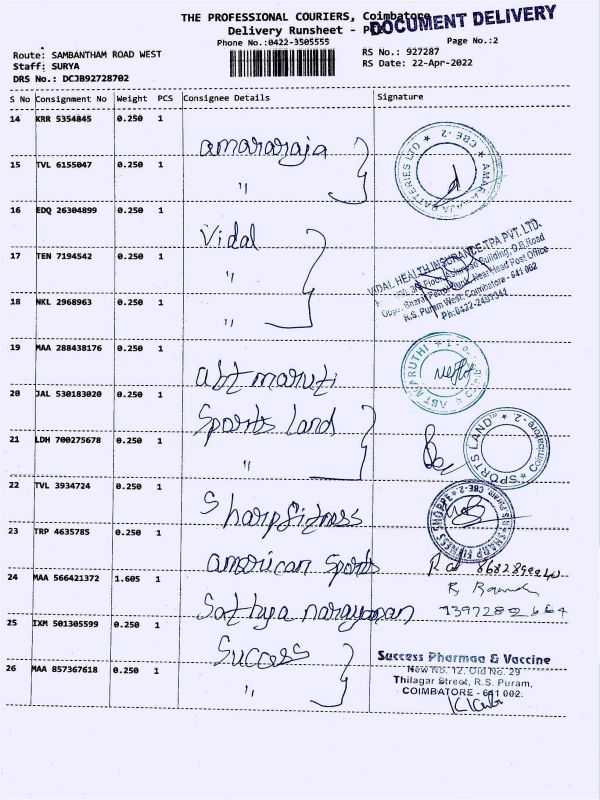 THE PROFESSIONAL COURIERS, Coimbatore
DOCUMENT DELIVERY
Delivery Runsheet - POD
Phone No.:0422-3505555
Page No.:2
Route: SAMBANTHAM ROAD WEST
RS No.: 927287
Staff: SURYA
RS Date: 22-Apr-2022
DRS No.: DCJB92728702
S No Consignment No Weight PCS Consignee Details Signature
14 KRR 5354845 0.250 1 amararaja
15 TVL 6155047 0.250 1 "
AMARA RAJA BATTERIES LTD ★ CBE-2 ★
16 EDQ 26304899 0.250 1 Vidal
17 TEN 7194542 0.250 1 "
18 NKL 2968963 0.250 1 "
VIDAL HEALTH INSURANCE TPA PVT. LTD.
Floor, Building, D.B.Road
Opp. Bharat Petrol Bunk, Near Head Post Office
R.S. Puram West, Coimbatore - 641 002
Ph:0422-2437341
19 MAA 288438176 0.250 1 abt maruti
ABT MARUTHI
20 JAL 530183020 0.250 1 Sports land
21 LDH 700275678 0.250 1 "
"SPORTS LAND" Coimbatore-2.
22 TVL 3934724 0.250 1 Sharp fitness
SHARP FITNESS SHOPPE ★ CBE-2 ★
23 TRP 4635785 0.250 1 american sports
24 MAA 566421372 1.605 1 Sathya narayanan
25 IXM 501305599 0.250 1 Success
26 MAA 857367618 0.250 1 "
Success Pharmaa & Vaccine
New No. 12, Old No. 29
Thilagar Street, R.S. Puram,
COIMBATORE - 641 002.